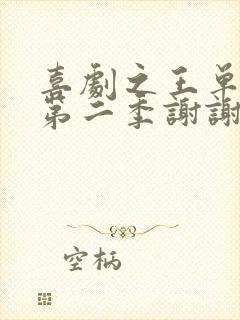 喜劇之王單
第二季謝謝
空柄